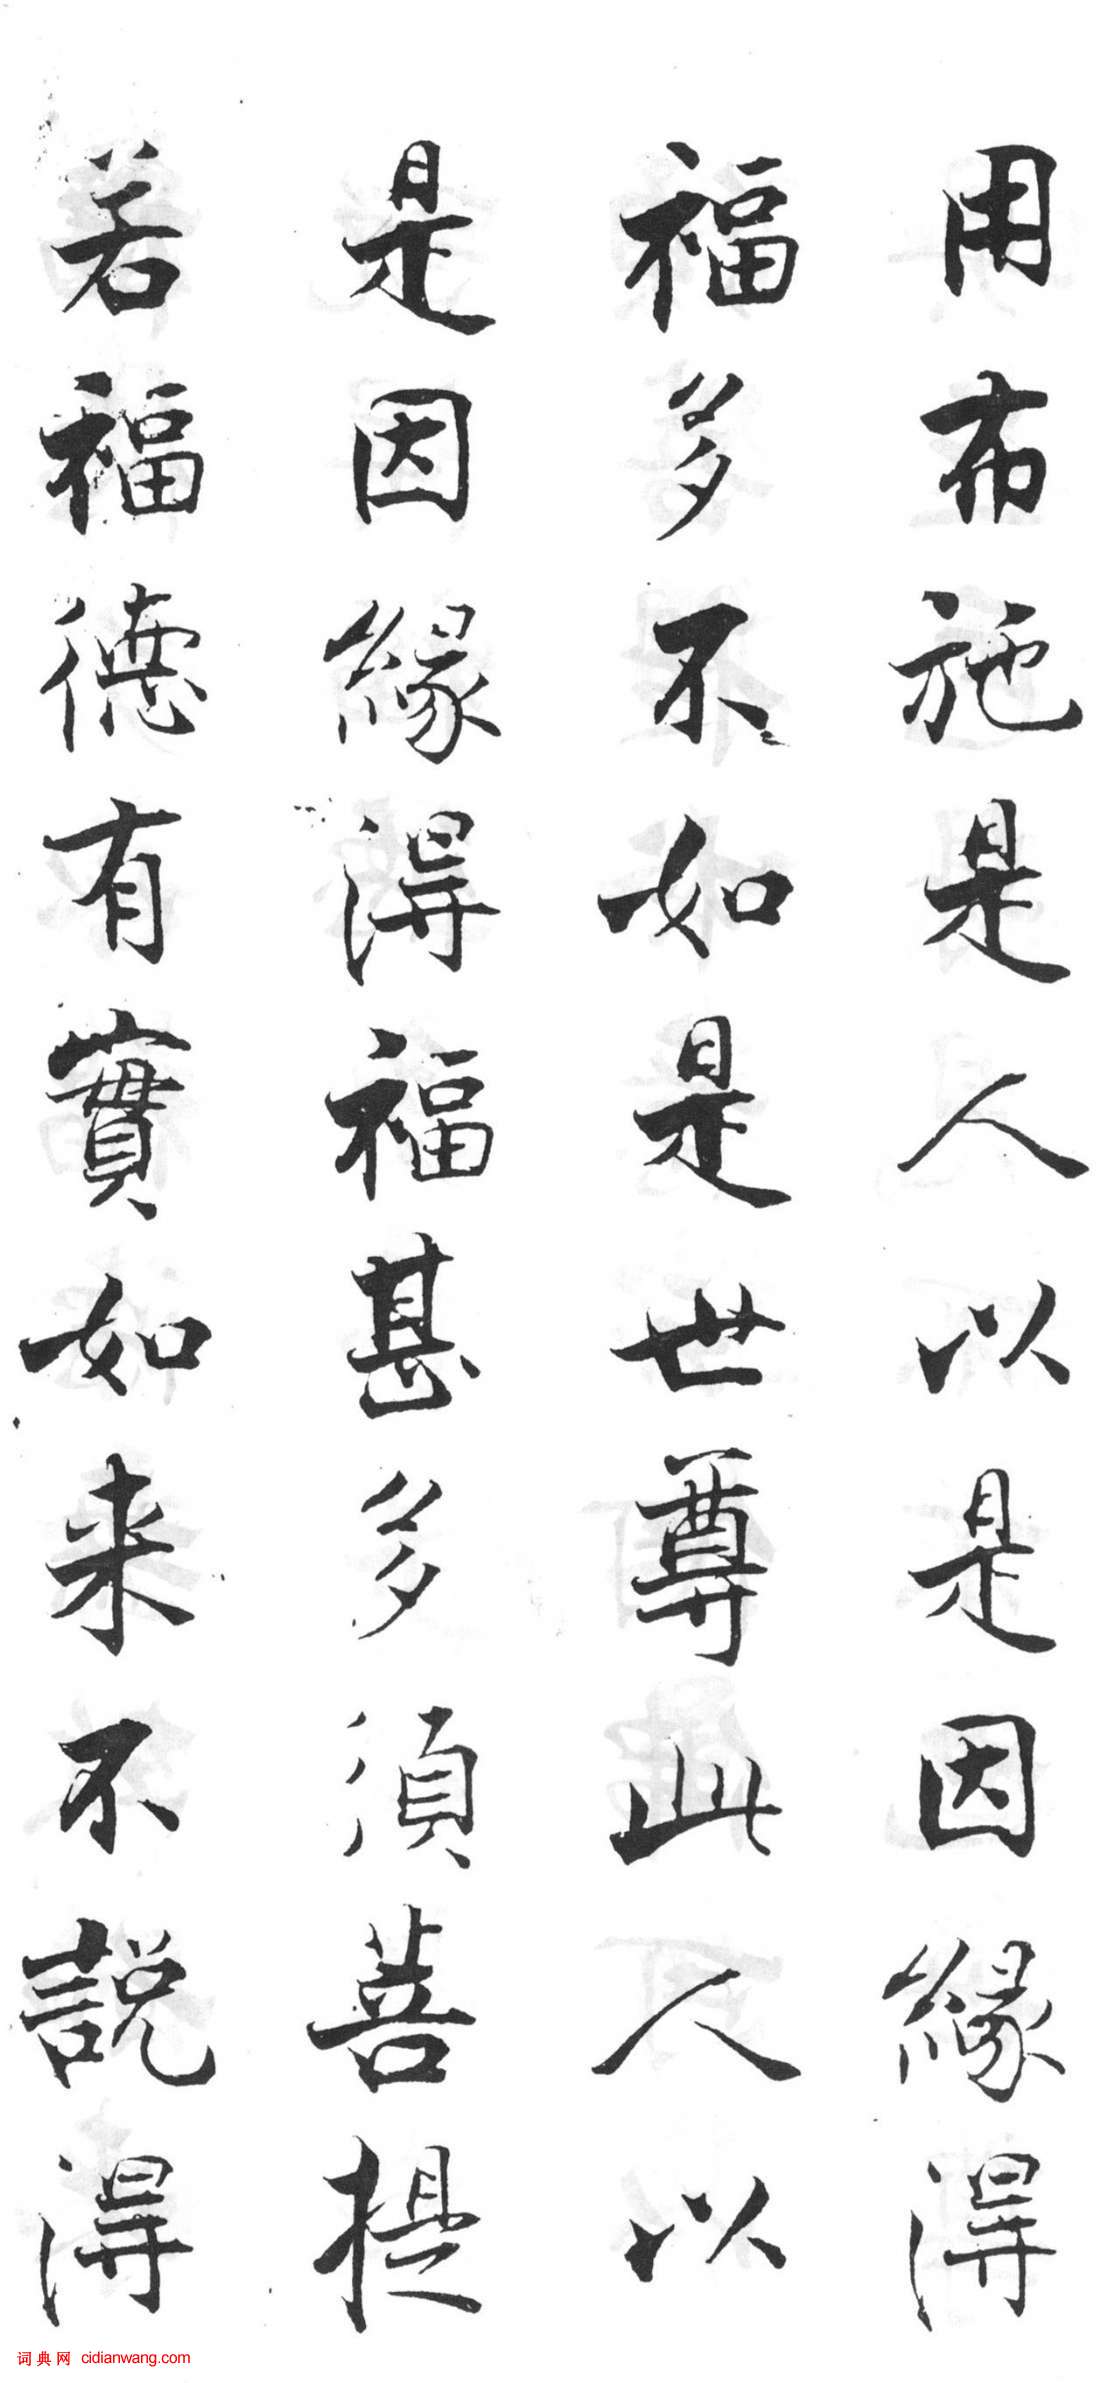 用布施是人以是因緣得
福多不如是世尊此人以
是因緣得福甚多須菩提
若福德有實如来不説得
词典网 cidianwang.com